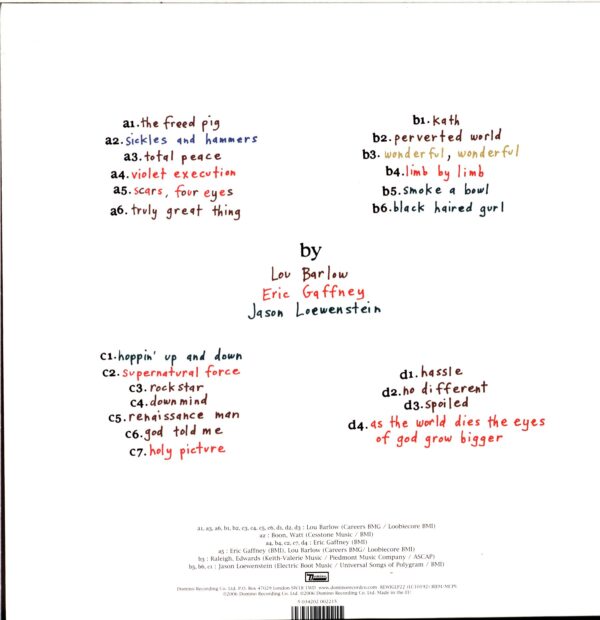 a1.the freed pig
a2.sickles and hammers
a3.total peace
a4.violet execution
a5.scars, four eyes
a6.truly great thing
b1.kath
b2.perverted world
b3.wonderful, wonderful
b4.limb by limb
b5.smoke a bowl
b6.black haired gurl
by
Lou Barlow
Eric Gaffney
Jason Loewenstein
c1.hoppin' up and down
c2.supernatural force
c3.rockstar
c4.downmind
c5.renaissance man
c6.god told me
c7.holy picture
d1.hassle
d2.no different
d3.spoiled
d4.as the world dies the eyes
of god grow bigger
a1, a3, a6, b1, b2, c3, c4, c5, c6, d1, d2, d3 : Lou Barlow (Careers BMG / Loobiecore BMI)
a2 : Boon, Watt (Cesstone Music / BMI)
a4, b4, c2, c7, d4 : Eric Gaffney (BMI)
a5 : Eric Gaffney (BMI), Lou Barlow (Careers BMG/ Loobiecore BMI)
b3 : Raleigh, Edwards (Keith-Valerie Music / Piedmont Music Company / ASCAP)
b5, b6, c1 : Jason Loewenstein (Electric Boot Music / Universal Songs of Polygram / BMI)
Domino
Domino Recording Co. Ltd. P.O. Box 47029 London SW18 1WD www.dominorecordco.com REWIGLP22 (LC10192) BIEM/MCPS
©2006 Domino Recording Co. Ltd. ℗2006 Domino Recording Co. Ltd. Made in the EU
5 034202 002215